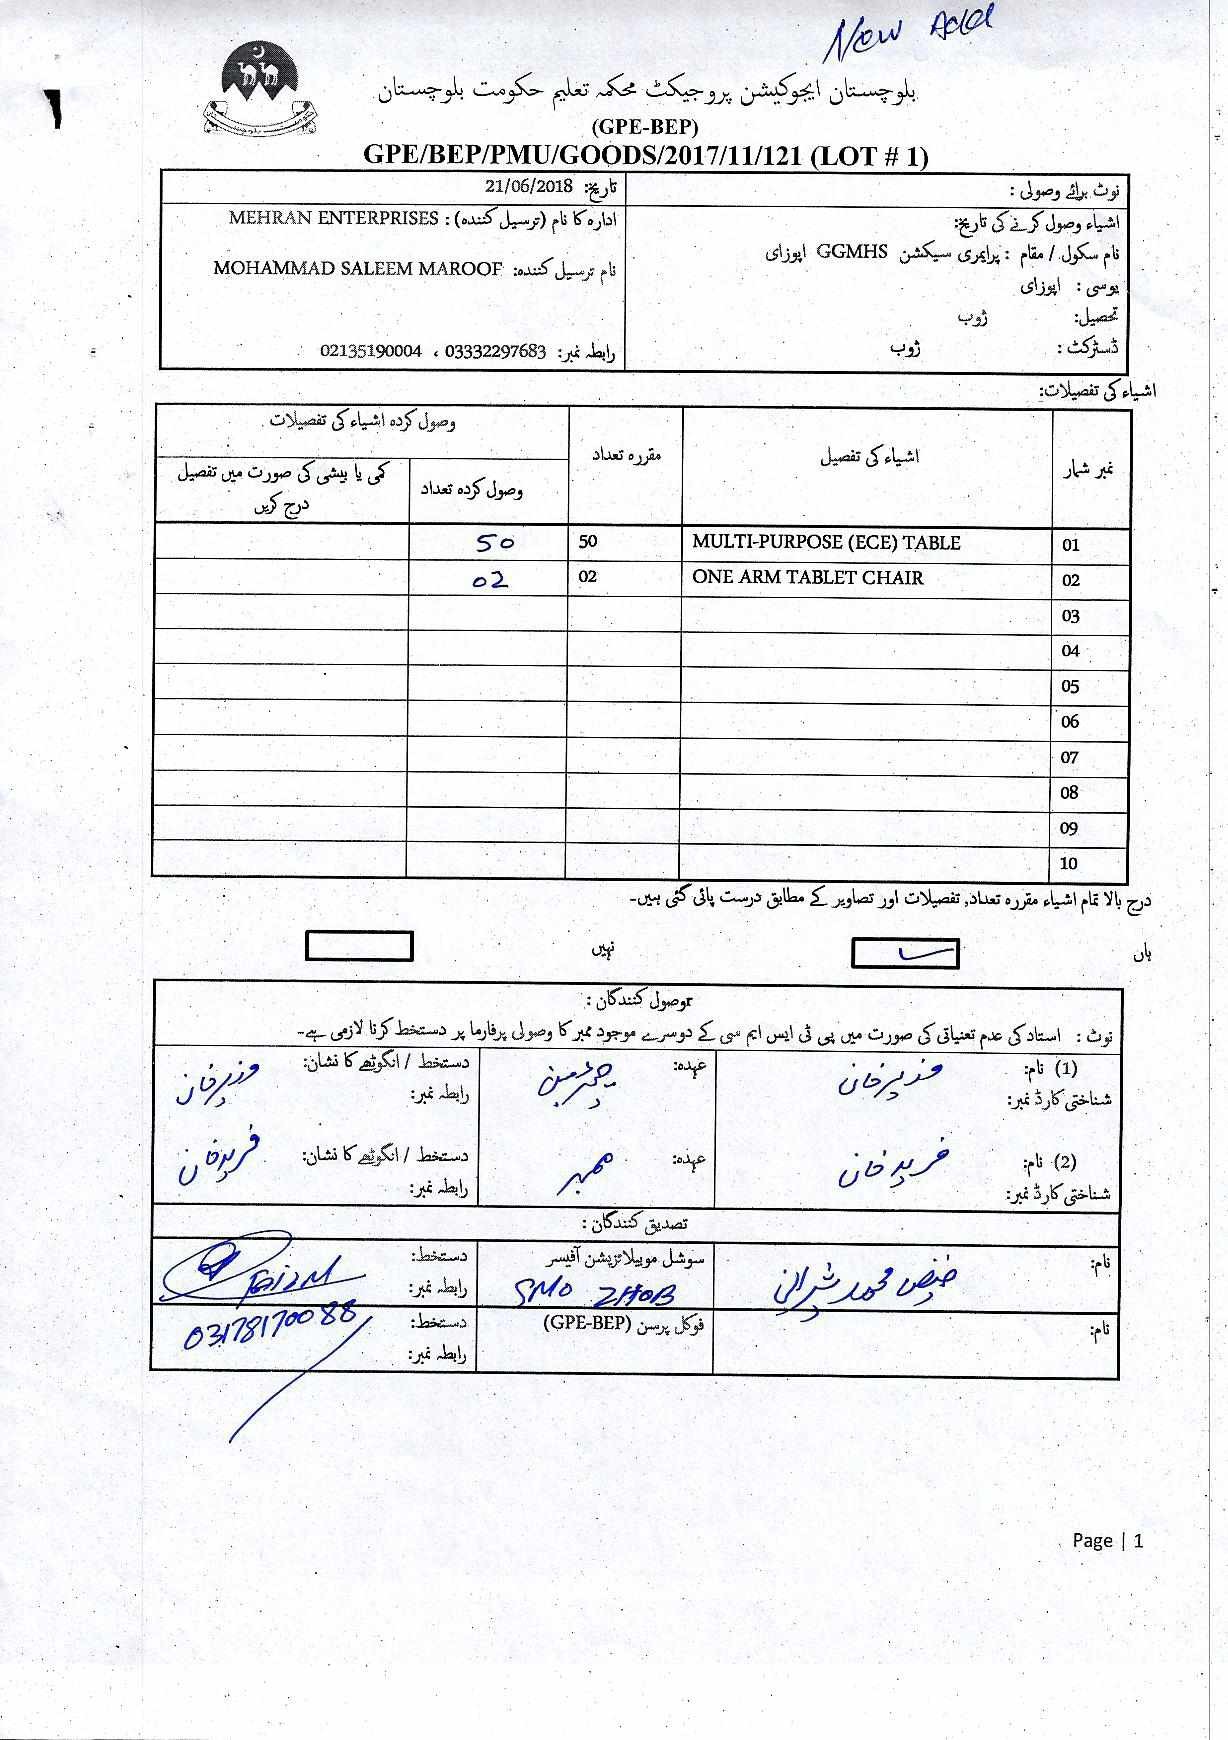 New Add
بلوچستان ایجوکیشن پروجیکٹ محکمہ تعلیم حکومت بلوچستان
(GPE-BEP)
GPE/BEP/PMU/GOODS/2017/11/121 (LOT # 1)
نوٹ برائے وصولی :
تاریخ: 21/06/2018
اشیاء وصول کرنے کی تاریخ:
ادارہ کا نام (ترسیل کنندہ) : MEHRAN ENTERPRISES
نام سکول / مقام : پرایمری سیکشن GGMHS اپوزای
نام ترسیل کنندہ: MOHAMMAD SALEEM MAROOF
یوسی : اپوزای
تحصیل: ژوب
ڈسٹرکٹ : ژوب
رابطہ نمبر: 03332297683 ، 02135190004
اشیاء کی تفصیلات:
نمبر شمار
اشیاء کی تفصیل
مقررہ تعداد
وصول کردہ اشیاء کی تفصیلات
وصول کردہ تعداد
کمی یا بیشی کی صورت میں تفصیل
درج کریں
01 MULTI-PURPOSE (ECE) TABLE 50 50
02 ONE ARM TABLET CHAIR 02 02
03
04
05
06
07
08
09
10
درج بالا تمام اشیاء مقررہ تعداد, تفصیلات اور تصاویر کے مطابق درست پائی گئی ہیں۔
ہاں
نہیں
وصول کنندگان :
نوٹ : استاد کی عدم تعنیاتی کی صورت میں پی ٹی ایس ایم سی کے دوسرے موجود ممبر کا وصولی پرفارما پر دستخط کرنا لازمی ہے۔
(1) نام: وزیرخان
عہدہ: چیئرمین
دستخط / انگوٹھے کا نشان: وزیرخان
شناختی کارڈ نمبر:
رابطہ نمبر:
(2) نام: فریدخان
عہدہ: ممبر
دستخط / انگوٹھے کا نشان: فریدخان
شناختی کارڈ نمبر:
رابطہ نمبر:
تصدیق کنندگان :
نام: فیض محمد شیرانی
سوشل موبیلائزیشن آفیسر
SMO ZHOB
دستخط: FaizM
رابطہ نمبر: 03178170088
نام:
فوکل پرسن (GPE-BEP)
دستخط:
رابطہ نمبر:
Page | 1